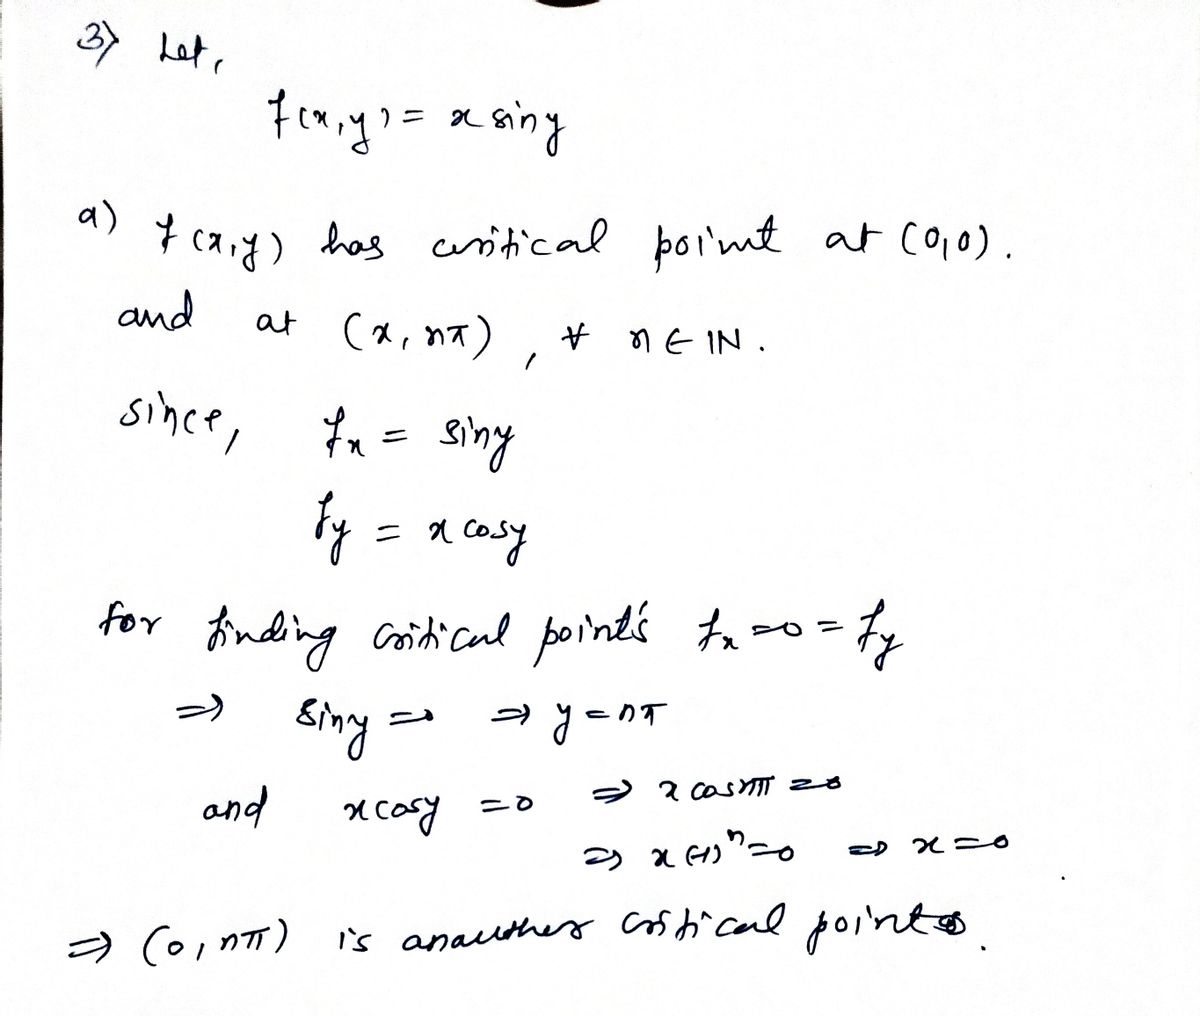 3) Let,
f(x,y) = x siny
a) f(x,y) has critical point at (0,0).
and at (x, nπ), ∀ n ∈ IN.
since, fx = siny
fy = x cosy
for finding critical points fx = 0 = fy
⇒ siny = 0 ⇒ y = nπ
and x cosy = 0 ⇒ x cos nπ = 0
⇒ x (-1)^n = 0 ⇒ x = 0
⇒ (0, nπ) is anauther critical points.